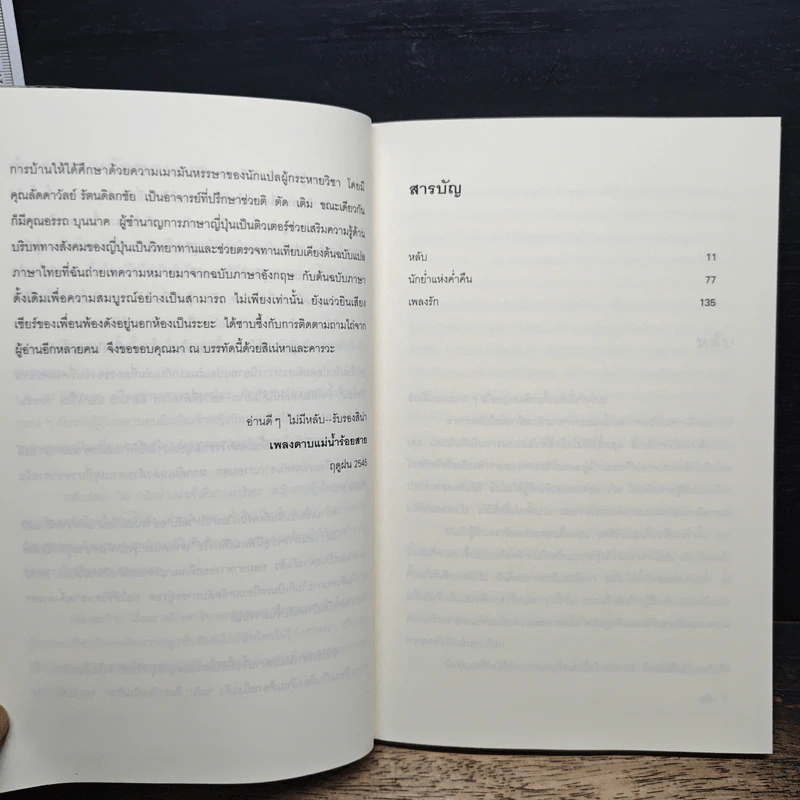 การบ้านให้ได้ศึกษาด้วยความเมามันหรรษาของนักแปลผู้กระหายวิชา โดยมี
คุณลัดดาวัลย์ รัตนดิลกชัย เป็นอาจารย์ที่ปรึกษาช่วยติ ตัด เติม ขณะเดียวกัน
ก็มีคุณอรรถ บุนนาค ผู้ชำนาญการภาษาญี่ปุ่นเป็นติวเตอร์ช่วยเสริมความรู้ด้าน
บริบททางสังคมของญี่ปุ่นเป็นวิทยาทานและช่วยตรวจทานเทียบเคียงต้นฉบับแปล
ภาษาไทยที่ฉันถ่ายเทความหมายมาจากฉบับภาษาอังกฤษ กับต้นฉบับภาษา
ดั้งเดิมเพื่อความสมบูรณ์อย่างเป็นสามารถ ไม่เพียงเท่านั้น ยังแว่วยินเสียง
เชียร์ของเพื่อนพ้องดังอยู่นอกห้องเป็นระยะ ได้ซาบซึ้งกับการติดตามถามไถ่จาก
ผู้อ่านอีกหลายคน จึงขอขอบคุณมา ณ บรรทัดนี้ด้วยสิเน่หาและคารวะ
อ่านดีๆ ไม่มีหลับ--รับรองสิน่า
เพลงดาบแม่น้ำร้อยสาย
ฤดูฝน 2545
สารบัญ
หลับ 11
นักย่ำแห่งค่ำคืน 77
เพลงรัก 135